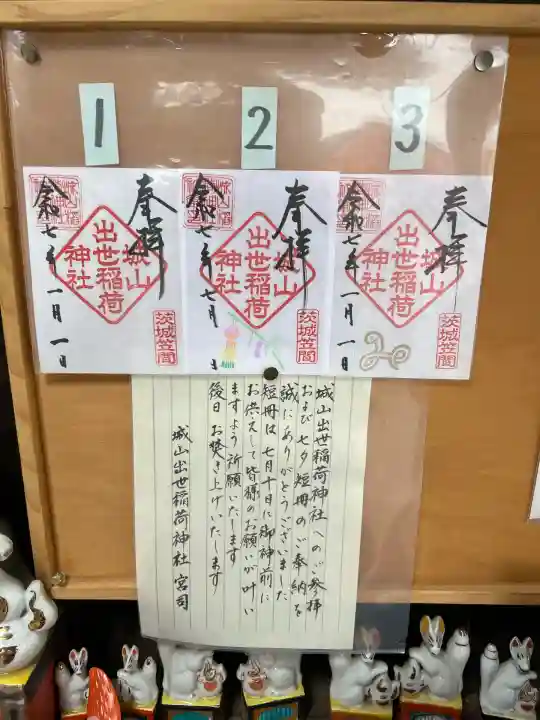 1
2
3
奉拝
城山
出世稲荷
神社
茨城笠間
令和七年 一月 一日
奉拝
城山
出世稲荷
神社
茨城笠間
令和七年 七月 日
奉拝
城山
出世稲荷
神社
茨城笠間
令和七年 一月 一日
城山出世稲荷神社へのご参拝
および七夕短冊のご奉納を
誠にありがとうございました
短冊は七月十日に御神前に
お供えして皆様のお願いが叶い
ますよう祈願いたします
後日お焚き上げいたします
城山出世稲荷神社 宮司